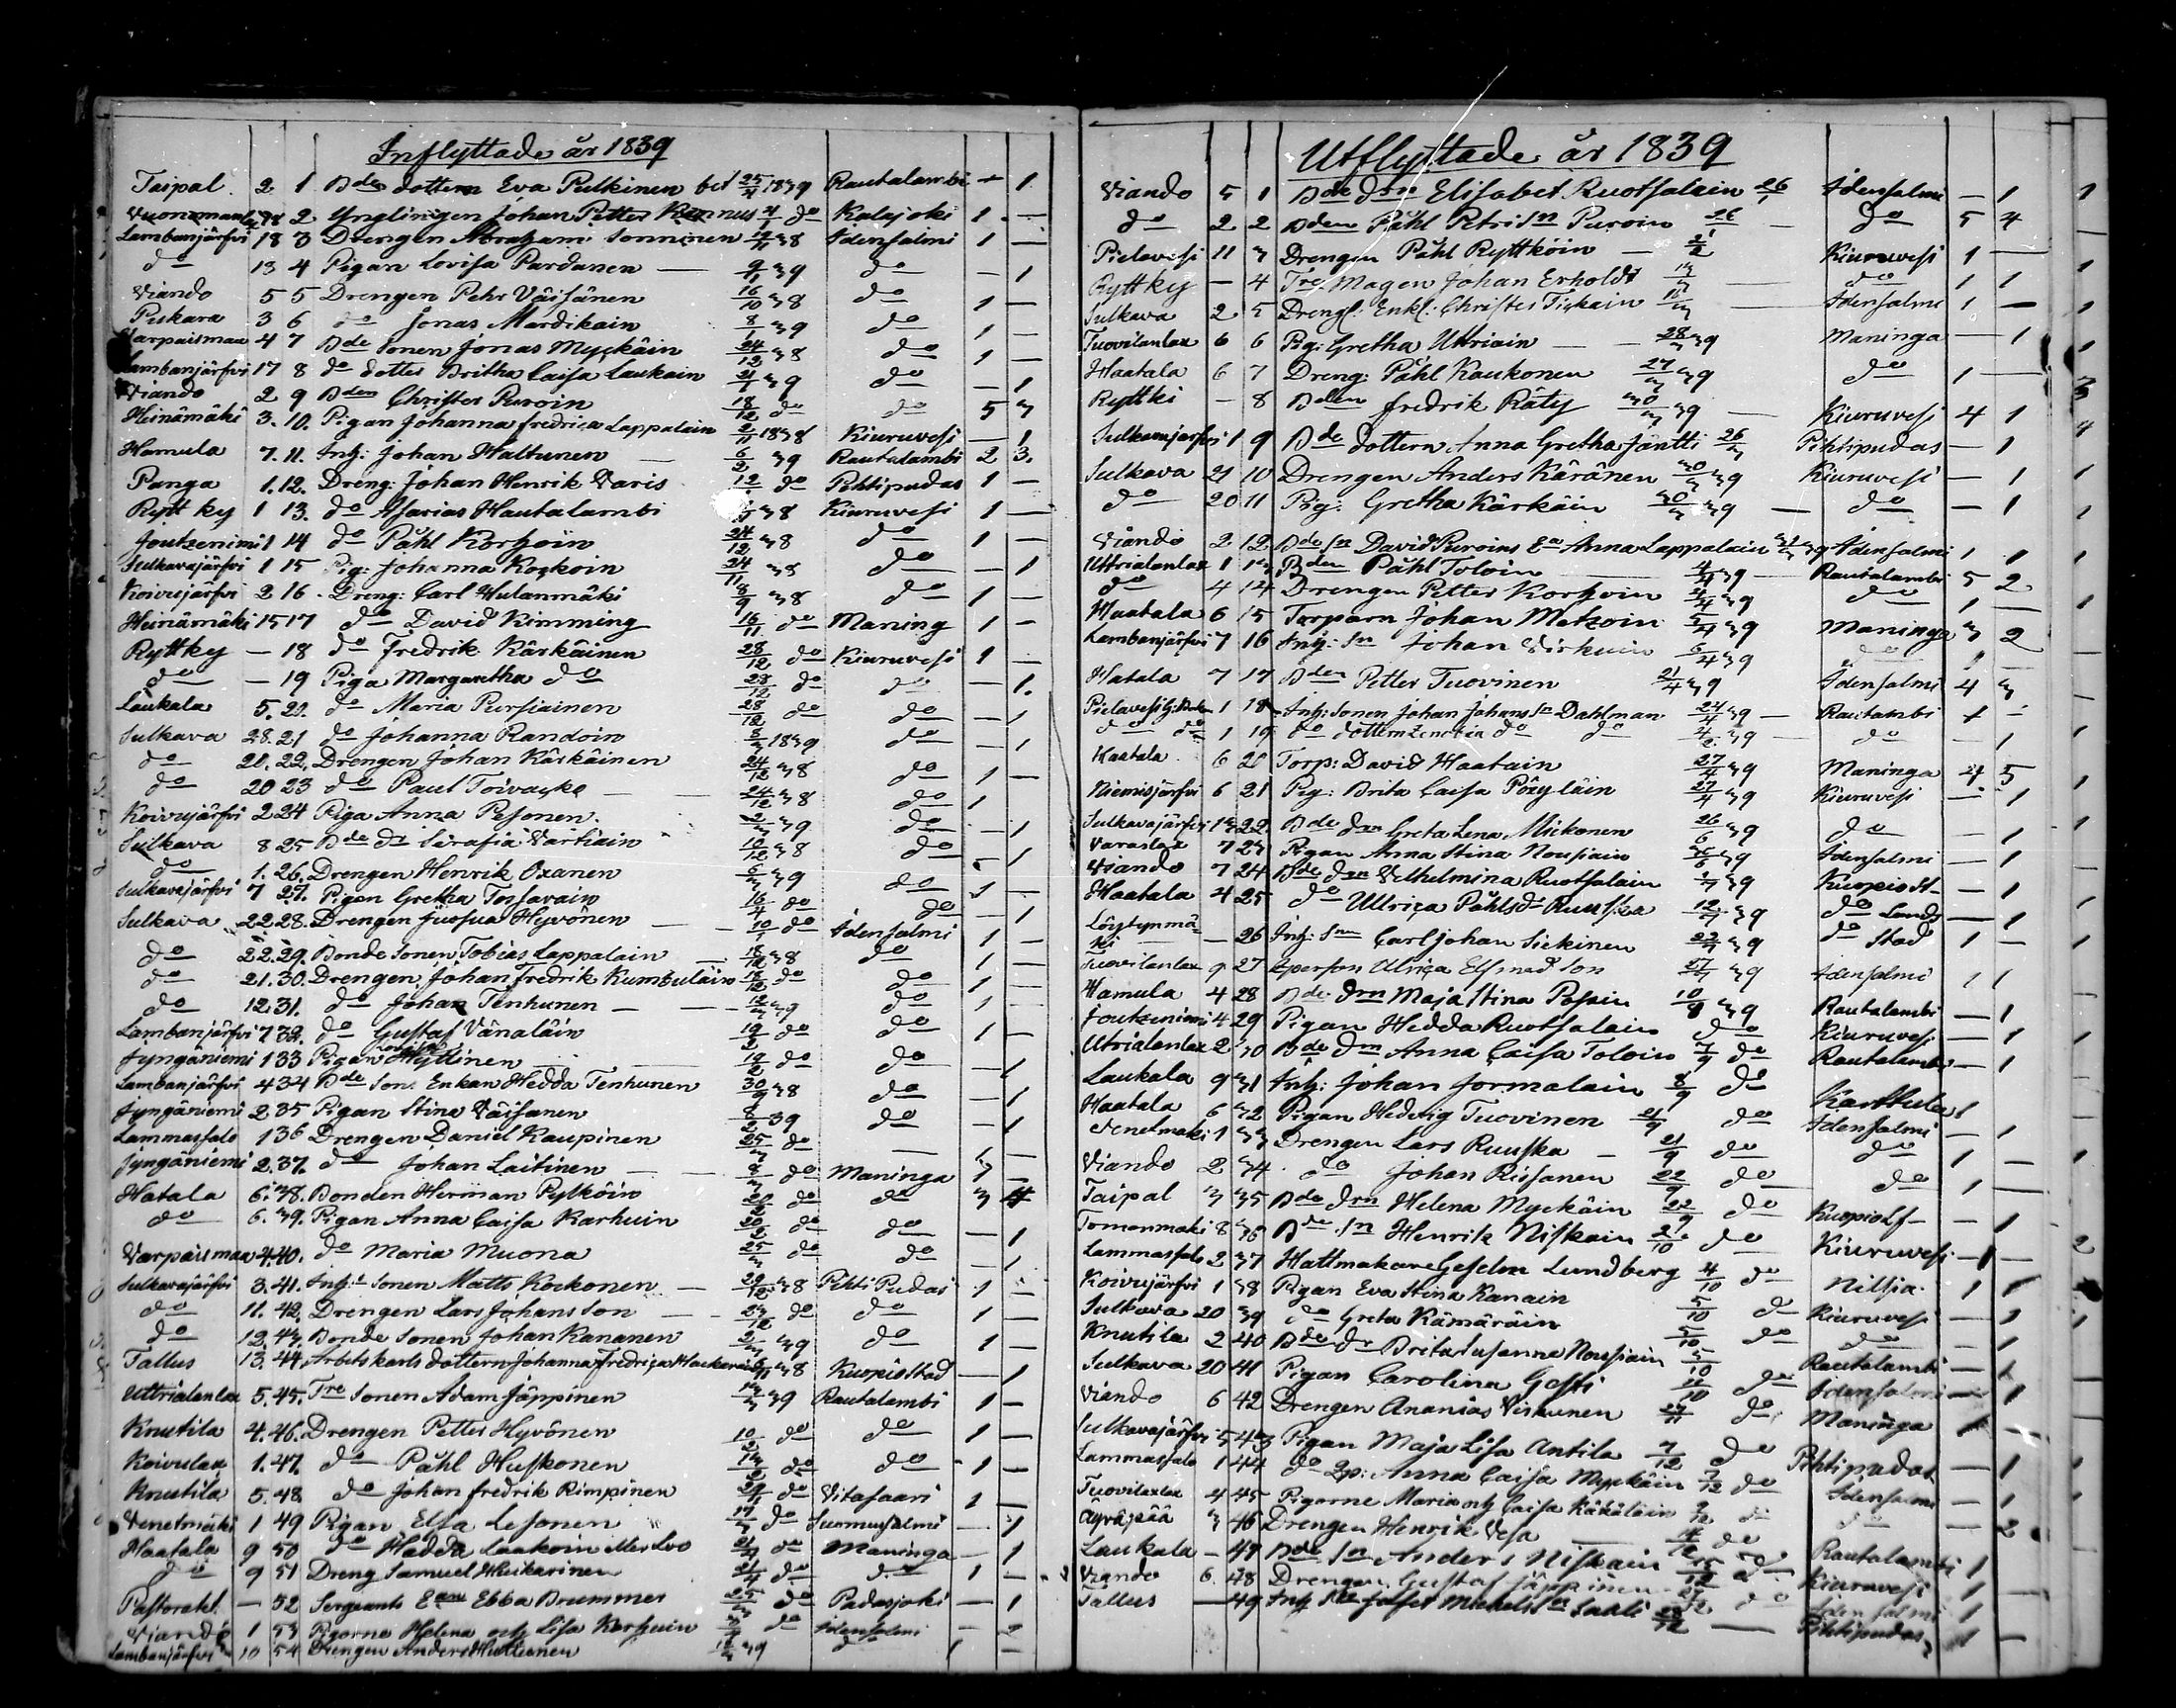 Inflyttade år 1839
Taipal. 2 1 Bde dottern Eva Pulkinen bet 25/4 1839 Rautalambi — 1
2 Ynglingen Johan Petter do Kalajoki 1 —
Lambanjärfvi 18 3 Drengen Abraham Sonninen 38 Idensalmi 1 —
do 13 4 Pigan Lovisa Pardanen — 9/1 39 do — 1
Viando 5 5 Drengen Pehr Väisänen 16/10 38 do 1 —
Peskara 3 6 do Jonas Mardikain 8/1 39 do 1 —
Varpaismaa 4 7 Bde Sonen Jonas Myckäin 24/12 38 do 1 —
Lambanjärfvi 17 8 do dotter Britha Caisa Laukain 21/1 39 do — 1
Viando 2 9 Bden Christer Puroin 18/12 do do 5 3
Heinämäki 3. 10. Pigan Johanna Fredrica Lappalain 2/11 1838 Kiuruvesi — 1
Hamula 7. 11. Inh: Johan Haltunen — 6/2 39 Rautalambi 2 3.
Panga 1. 12. Dreng: Johan Henrik Varis 12/ do Pihtipudas 1 —
Rytt ky 1 13. do Asarias Hautalambi 38 Kiuruvesi 1 —
Joutzenimi 1 14 do Påhl Korhoin 24/12 38 do 1 —
Sulkavajärfvi 1 15 Pig: Johanna Kockoin 24/11 38 do — 1
Koivujärfvi 2 16. Dreng: Carl Hulanmäki 8/9 38 do 1 —
Heinämäki 15 17 do David Kimming 16/11 do Maning 1 —
Ryttky — 18 do Fredrik Kärkäinen 28/12 do Kiuruvesi 1 —
do — 19 Piga Margaretha do 28/12 do do — 1.
Laukala 5. 20. do Maria Pursiainen 28/12 do do — 1
Sulkava 28. 21 do Johanna Randoin 5/3 1839 do — 1
do 20. 22. Drengen Johan Kärkäinen 24/12 38 do 1 —
do 20 23 do Paul Toivacke — 24/12 38 do 1
Koivujärfvi 2 24 Piga Anna Pesonen. 2/3 39 do — 1
Sulkava 8 25 Bde dr Serafia Vartiain 10/12 38 do — 1
do 1. 26. Drengen Henrik Oxanen 6/3 39 do 1 —
Sulkavajärfvi 7 27. Pigan Gretha Tossavain 16/4 do do — 1
Sulkava 22. 28. Drengen Juosua Hyvönen — 10/1 do Idensalmi 1 —
do 22. 29. Bonde Sonen Tobias Lappalain — 18/12 38 do 1 —
do 21. 30. Drengen Johan Fredrik Kumbulain 16/12 do do 1 —
do 12. 31. do Johan Tenhunen — 12/3 39 do 1 —
Lambanjärfvi 7 32. do Gustaf Vänaläin 19/2 do do 1 —
Jyngäniemi 1 33 Pigan Hyttinen 19/2 do do — 1
Lambanjärfvi 4 34 Bde Sons Enkan Hedda Tenhunen 30/9 38 do — 1
Jyngäniemi 2. 35 Pigan Stina Väisanen 8/2 39 do — 1
Lammassalo 1 36 Drengen Daniel Kaupinen 25/3 do — 1 —
Jyngäniemi 2. 37. do Johan Laitinen — 8/3 do Maninga 1 —
Hatala 6. 38. Bonden Herman Pylköin 20/2 do do 3 4
do 6. 39. Pigan Anna Caisa Karhuin 20/2 do do — 1
Varpaismaa 4. 40. do Maria Muona 25/3 do do — 1
Sulkavajärfvi 3. 41. Inh: Sonen Matts Kockonen — 29/12 38 Pihti Pudas 1 —
do 11. 42. Drengen Lars Johans Son — 23/12 do do 1 —
do 12. 43. Bonde Sonen Johan Kananen 2/3 39 do 1 —
Tallus 13. 44. Arbetskarls dottern Johanna Fredrica 38 Kuopiostad — 1
Uttrialanlax 5. 45. Tre Sonen Adam Jäppinen 13/3 39 Rautalambi 1 —
Knutila 4. 46. Drengen Petter Hyvönen 10/2 do do 1 —
Koivulax 1. 47. do Påhl Huskonen 13/2 do do 1 —
Knutila 5. 48 do Johan Fredrik Rimpinen 29/1 do Vitasaari 1 —
Venetmäki 1 49 Pigan Elsa Lesonen 17/3 do Suomussalmi — 1
Haatala 9 50 do Hedda Laakoin 21/4 do Maninga — 1
do 9 51 Dreng Samuel Huskarinen 21/4 do do 1 —
Pastoratet. — 52 Sergeants Ean Ebba Brummer 25/3 do Padasjoki — 1
Viando 1 53 Pigorne Helena och Lisa Korhuin do Idensalmi — 2
Lambanjärfvi 10 54 Drengen Anders Huttunen 39 do 1 —
Utflyttade år 1839
Viando 5 1 Bde drn Elisabet Ruotsalain 26/1 Idensalmi — 1
do 2 2 Bden Påhl Petri Sn Puroin 26/1 — do 5 4
Pielavesi 11 3 Drengen Påhl Ryttköin — 2/2 Kiuruvesi 1 —
Ryttky — 4 Tre Magen Johan Erholdt 13/3 — do 1 1
Sulkava 2 5 Drengs: Enkl: Christer Tickain 18/3 — Idensalmi 1 —
Tuovilanlax 6 6 Pig: Gretha Uttriain — 28/3 39 Maninga — 1
Haatala 6 7 Dreng: Påhl Kaukonen 27/3 39 do 1 —
Ryttki — 8 Bden Fredrik Räty 30/3 39 — Kiuruvesi 4 1
Sulkavajärfvi 1 9 Bde dottern Anna Gretha Jäntti 26/3 Pihtipudas — 1
Sulkava 21 10 Drengen Anders Käränen 30/3 39 Kiuruvesi — 1
do 20 11 Pig: Gretha Kärkäin 30/3 39 — do — 1
Viando 2 12 Bde Sn David Puroins Ea Anna Lappalain 39 Idensalmi 1 1
Uttrialanlax 1 13 Bden Påhl Toloin — 4/4 39 — Rautalambi 5 2
do 4 14 Drengen Petter Korhoin 4/4 39 do 1 —
Haatala 6 15 Torparn Johan Matzoin 5/4 39 Maninga 3 2
Lambanjärfvi 7 16 Inh: Sn Johan Virkuin 6/4 39 do 1 —
Hatala 7 17 Bden Petter Tuovinen 21/4 39 Idensalmi 4 3
1 18 Inh: Sonen Johan Johans Sn Dahlman 24/4 39 — Rautambi 1 —
do do 1 19 do dottern do do 39 — do — 1
Haatala 6 20 Torp: David Haatain 27/4 39 Maninga 4. 5
Niemisjärfvi 6 21 Pig: Brita Caisa Pöxyläin 27/4 39 Kiuruvesi — 1
Sulkavajärfvi 13 22. Bde drn Greta Lena Mickonen 26/6 39 do — 1
Varaslax 7 23 Pigan Anna Stina Nousiain 39 Idensalmi — 1
Viando 7 24 Bde drn Vilhelmina Ruotsalain 39 Kuopio St — 1
Haatala 4 25 do Ullrica Påhls dr Ruuska 12/7 39 do Lands — 1
Löytynmä-
ki — 26 Inh: Sn Carl Johan Siekinen 22/7 39 do Stad 1 —
Tuovilanlax 9 27 Ulrica 27/7 39 Idensalmi 1 1
Hamula 4 28 Bde drn Maja Stina Possin 10/8 39 Rautalambi — 1
Joutzenimi 4 29 Pigan Hedda Ruotsalain do Kiuruvesi — 1
Utrialanlax 2 30 Bde drn Anna Caisa Toloin 7/9 do Rautalambi — 1
Laukala 9 31 Inh: Johan Jormalain 8/9 do Karttula 1
Haatala 6 32 Pigan Hedvig Tuovinen 21/9 do Idensalmi — 1
Venetmäki 1 33 Drengen Lars Ruuska — 21/9 do do 1 —
Viando 2 34 do Johan Rissanen 22/9 do do 1 —
Taipal 3 35 Bde drn Helena Myckäin 22/9 do Kuopio Lf — 1
8 36 Bde Sn Henrik Niskain 2/10 do Kiuruvesi 1 —
Lammassalo 2 37 Hattmakare Geselen Lundberg 4/10 do Nilsia 1 1
Koivujärfvi 1 38 Pigan Eva Stina Kanain 5/10 do Kiuruvesi — 1
Sulkava 20 39 do Greta Kämäräin 5/10 do do — 1
Knutila 2 40 Bde dr Brita Susanna Nousiain 5/10 Rautalambi — 1
Sulkava 20 41 Pigan Carolina Gosti do Idensalmi — 1
Viando 6 42 Drengen Ananias Viskunen 27/11 do Maninga 1 —
Sulkavajärfvi 5 43 Pigan Maja Lisa Antila 7/12 do Pihtipudas — 1
Lammassalo 1 44 do Qp: Anna Caisa Myckäin 7/12 do Idensalmi — 1
Tuovilaxlax 4 45 Pigorne Maria och Caisa Käkäläin do do — 2
Äyräpää 3 46 Drengen Henrik Vesa do Rautalambi 1
Laukala — 47 Bde Sn Anders Niskain Kiuruvesi 1 —
Viando 6. 48 Drengen Gustaf Jäppinen do Idensalmi 1 —
Tallus — 49 Inh Michels Sn — Pihtipudas 1 —